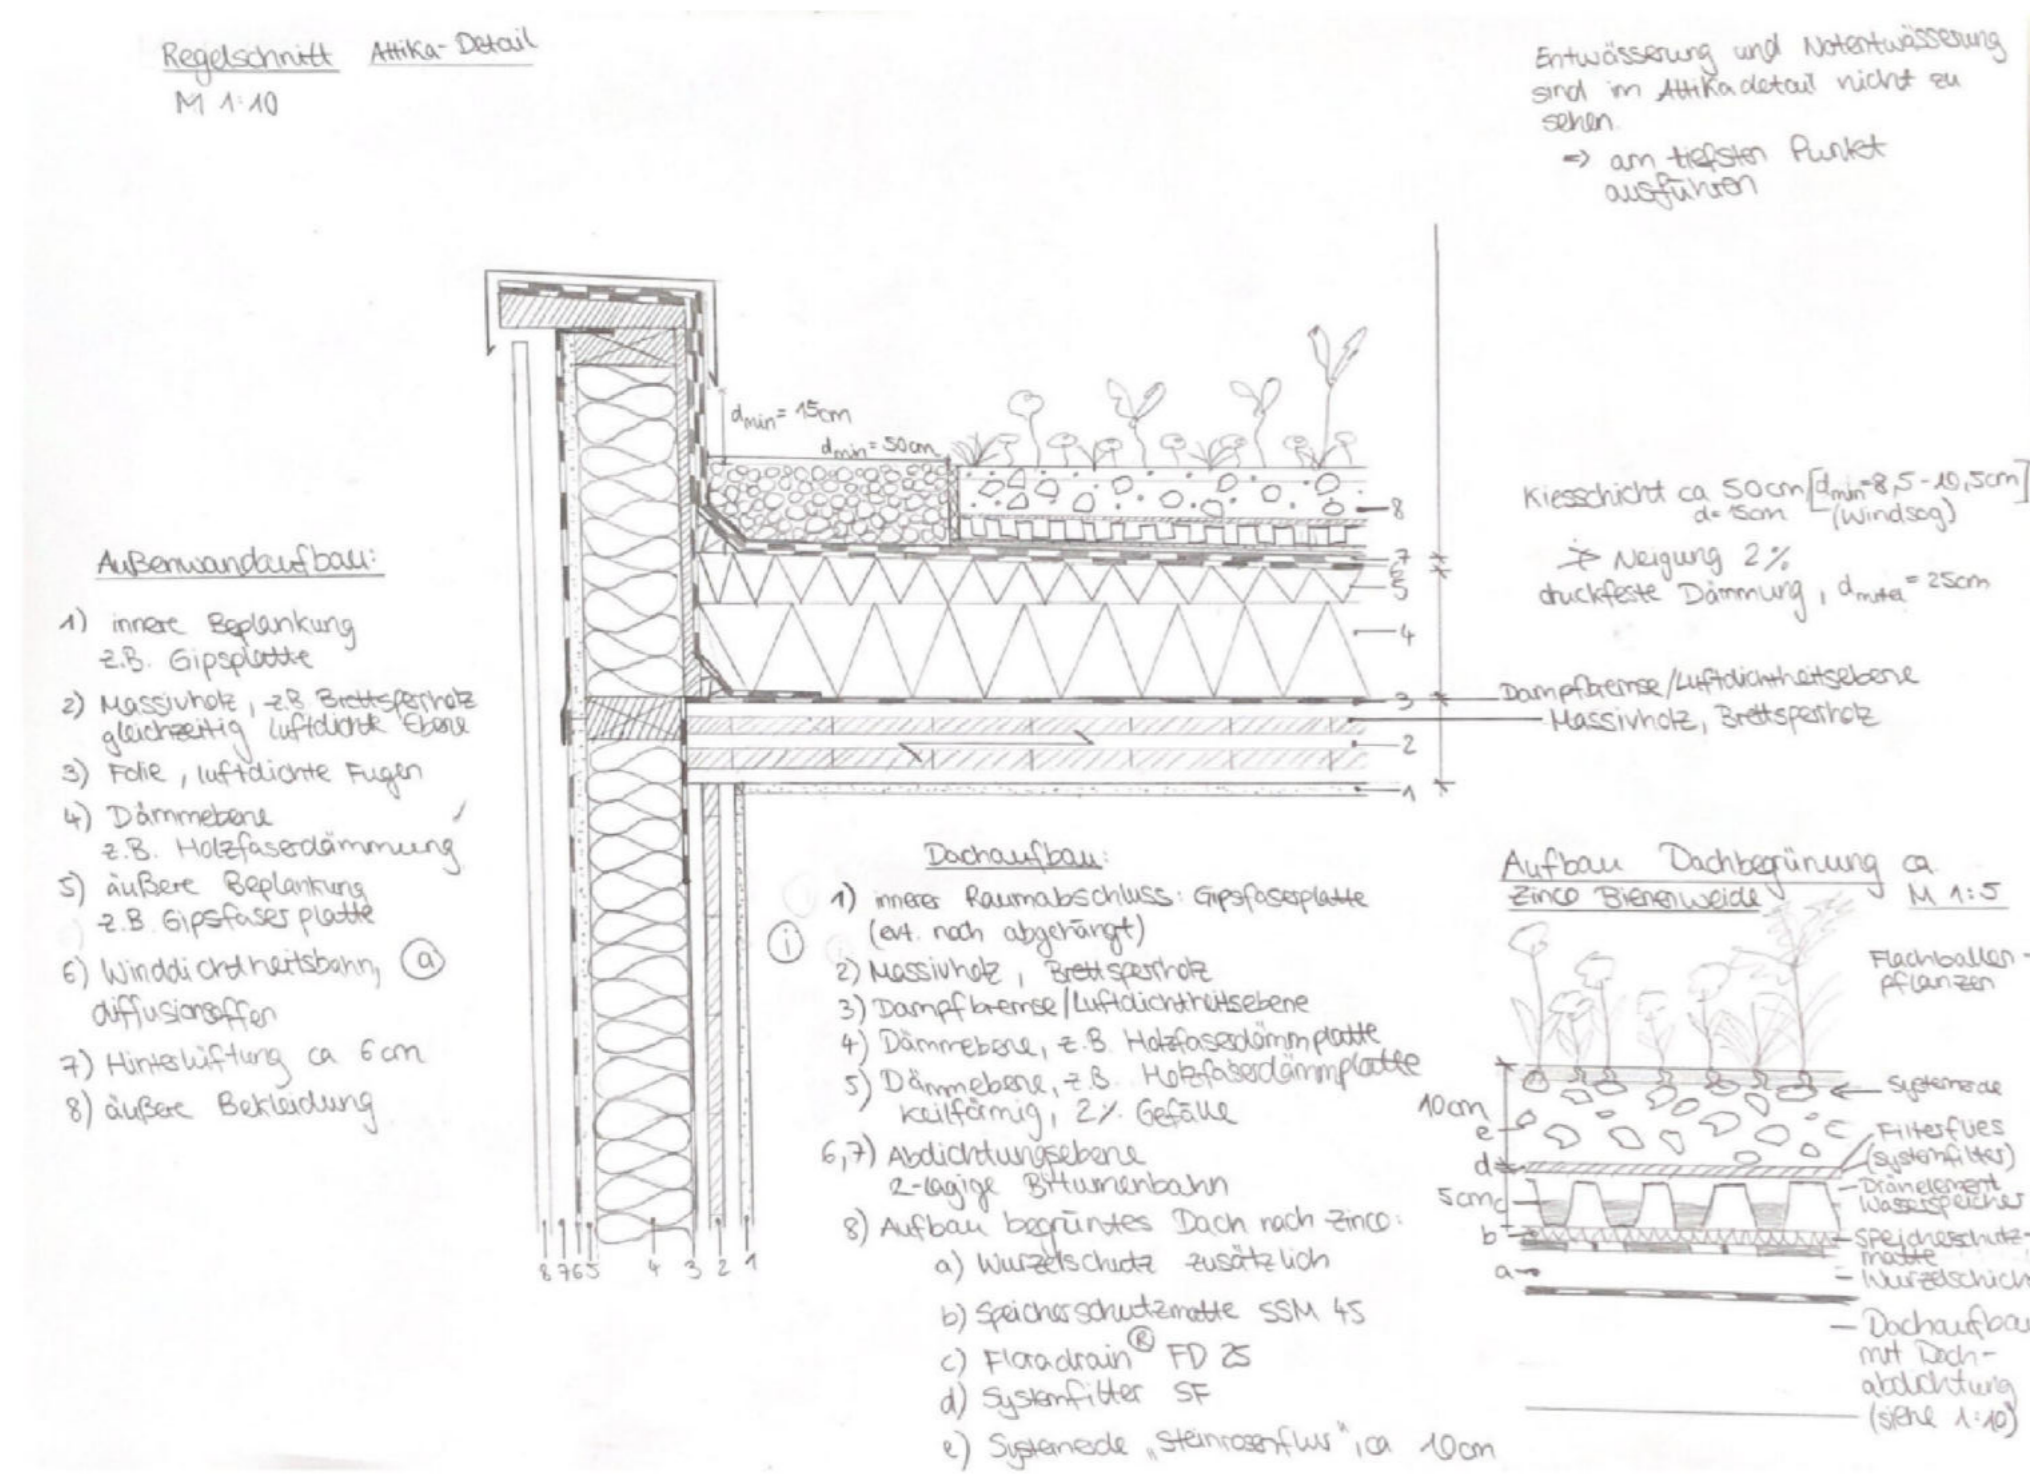 Regelschnitt Attika-Detail
M 1:10
Entwässerung und Notentwässerung
sind im Attikadetail nicht zu
sehen.
=> am tiefsten Punkt
ausführen
dmin = 15cm
dmin = 50cm
8
7
6
5
4
3
2
1
Kiesschicht ca 50cm [dmin=8,5-10,5cm]
d= 15cm (Windsog)
Neigung 2%
druckfeste Dämmung, dmittel = 25cm
Dampfbremse/Luftdichtheitsebene
Massivholz, Brettsperrholz
Außenwandaufbau:
1) innere Beplankung
z.B. Gipsplatte
2) Massivholz, z.B. Brettsperrholz
gleichzeitig luftdichte Ebene
3) Folie, luftdichte Fugen
4) Dämmebene
z.B. Holzfaserdämmung
5) äußere Beplankung
z.B. Gipsfaserplatte
6) Winddichtheitsbahn,
diffusionsoffen
7) Hinterlüftung ca 6cm
8) äußere Bekleidung
a
i
8 7 6 5 4 3 2 1
Dachaufbau:
1) innerer Raumabschluss: Gipsfaserplatte
(evt. noch abgehängt)
2) Massivholz, Brettsperrholz
3) Dampfbremse/Luftdichtheitsebene
4) Dämmebene, z.B. Holzfaserdämmplatte
5) Dämmebene, z.B. Holzfaserdämmplatte
keilförmig, 2% Gefälle
6,7) Abdichtungsebene
2-lagige Bitumenbahn
8) Aufbau begrüntes Dach nach Zinco:
a) Wurzelschutz zusätzlich
b) Speicherschutzmatte SSM 45
c) Floradrain® FD 25
d) Systemfilter SF
e) Systemerde „Steinrosenflur", ca 10cm
Aufbau Dachbegrünung ca.
Zinco Bienenweide M 1:5
Flachballen-
pflanzen
Systemerde
10cm
e
Filterflies
(Systemfilter)
d
Dränelement
Wasserspeicher
5cm
c
Speicherschutz-
matte
b
Wurzelschich
a
Dachaufbau
mit Dach-
abdichtung
(siehe 1:10)